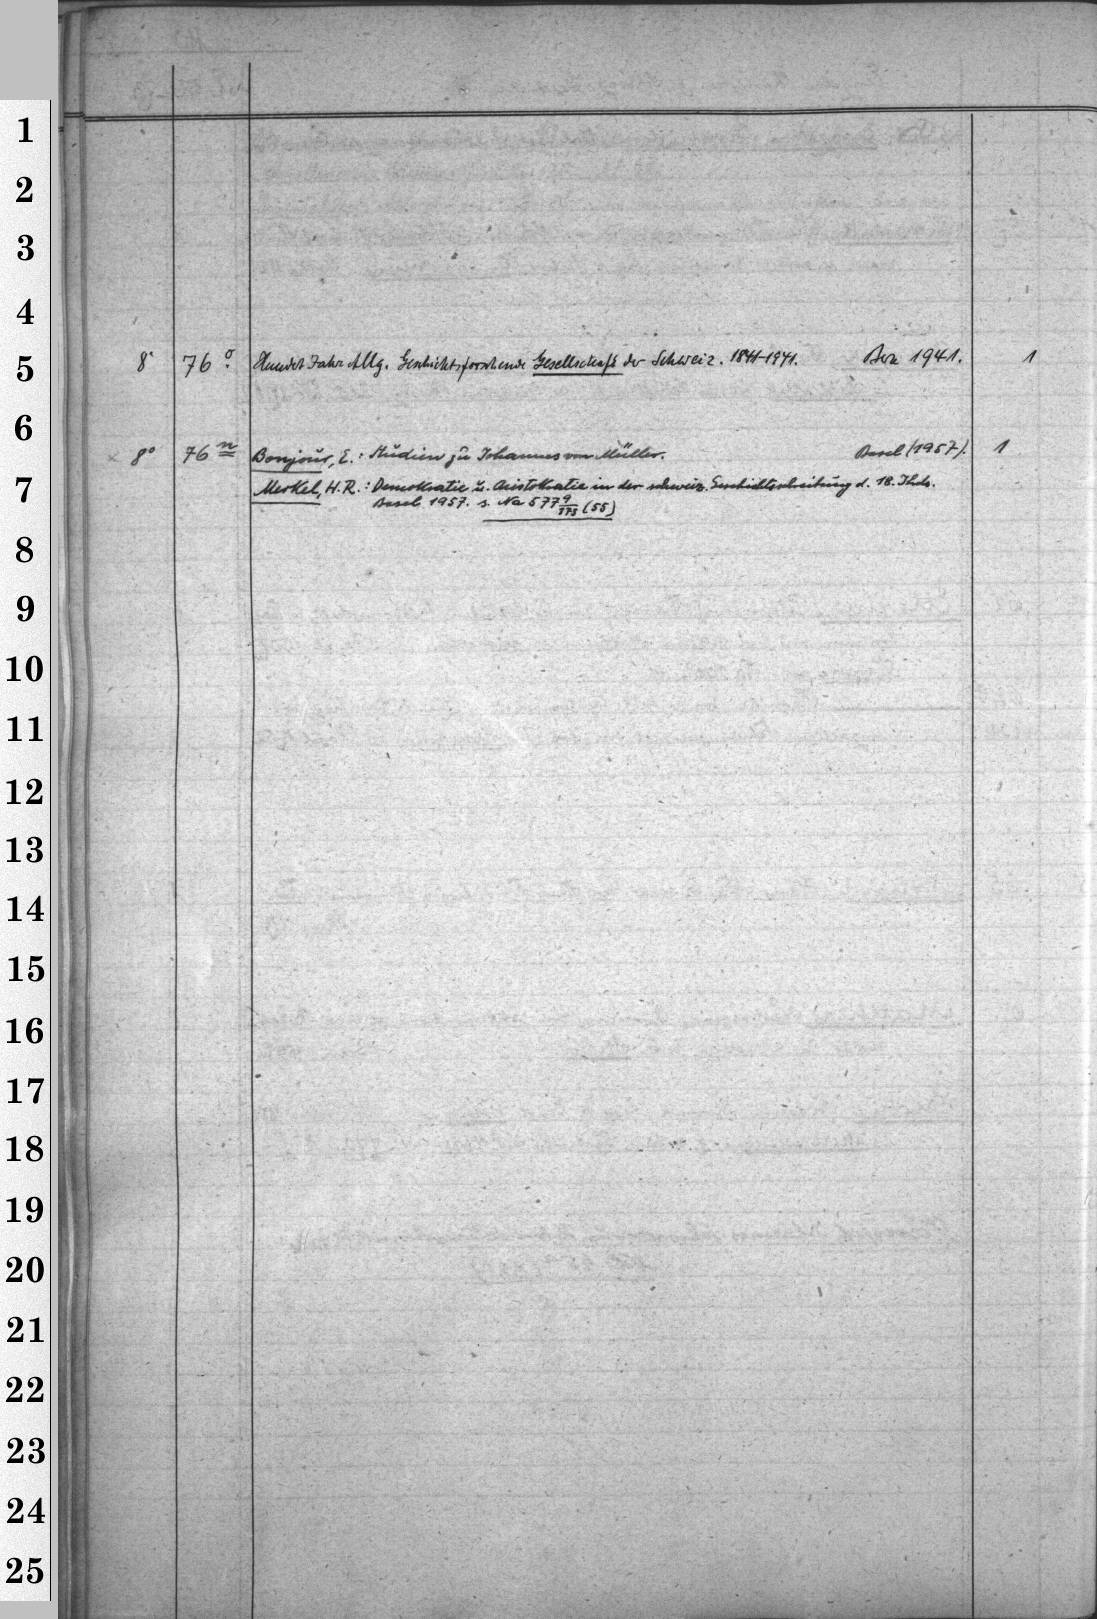 1
2
3
4
5
8° 76 o. Hundert Jahre Allg. Geschichtsforschende Gesellschaft der Schweiz. 1841-1941. Bern 1941. 1
6
× 8° 76 n Bonjour, E.: Studien zu Johannes von Müller. Basel (1957). 1
7
Merkel, H.R.: Demokratie u. Aristokratie in der schweiz. Geschichtsschreibung d. 18. Jhds.
Basel 1957. s. Na 5779/175 (55)
8
9
10
11
12
13
14
15
16
17
18
19
20
21
22
23
24
25